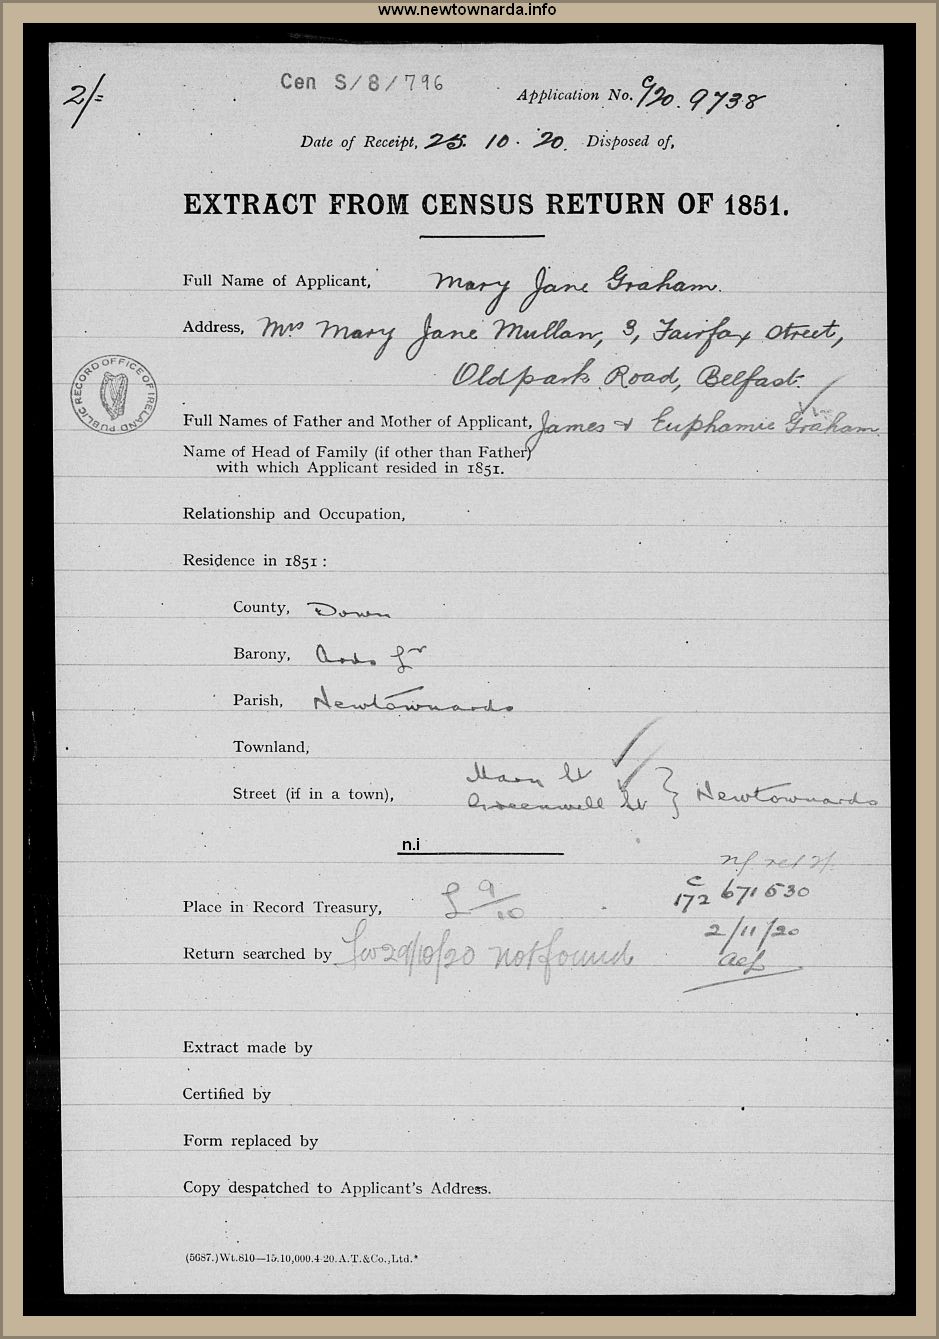 www.newtownarda.info
2/=
Cen S/8/796
Application No. C/20. 9738
Date of Receipt, 25. 10. 20. Disposed of,
EXTRACT FROM CENSUS RETURN OF 1851.
Full Name of Applicant, Mary Jane Graham.
Address, Mrs Mary Jane Mullan, 3, Fairfax Street,
Oldpark Road, Belfast.
PUBLIC RECORD OFFICE OF IRELAND
Full Names of Father and Mother of Applicant, James & Euphamie Graham
Name of Head of Family (if other than Father)
with which Applicant resided in 1851.
Relationship and Occupation,
Residence in 1851 :
County, Down
Barony, Ards Lr
Parish, Newtownards
Townland,
Mary St
Street (if in a town), Greenwell St } Newtownards
n.i
C
172 671530
Place in Record Treasury, £ 9/10
2/11/20
Return searched by 29/10/20 not found
Extract made by
Certified by
Form replaced by
Copy despatched to Applicant's Address.
(5687.)Wt.810—15.10,000.4-20.A.T.&Co.,Ltd.*